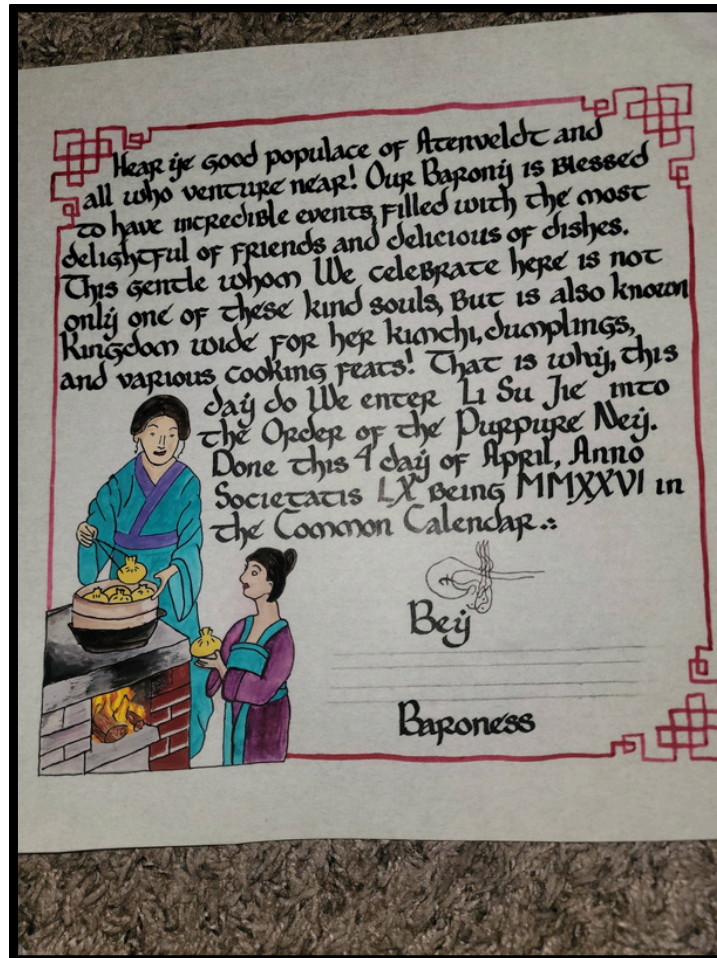 Hear ye good populace of Atenveldt and
all who venture near! Our Barony is blessed
to have incredible events, filled with the most
delightful of friends and delicious of dishes.
This gentle whom We celebrate here is not
only one of these kind souls, but is also known
Kingdom wide for her kimchi, dumplings,
and various cooking feats! That is why, this
day do We enter Li Su Jie into
the Order of the Purpure Ney.
Done this 4 day of April, Anno
Societatis LX being MMXXVI in
the Common Calendar.:
Bey
Baroness